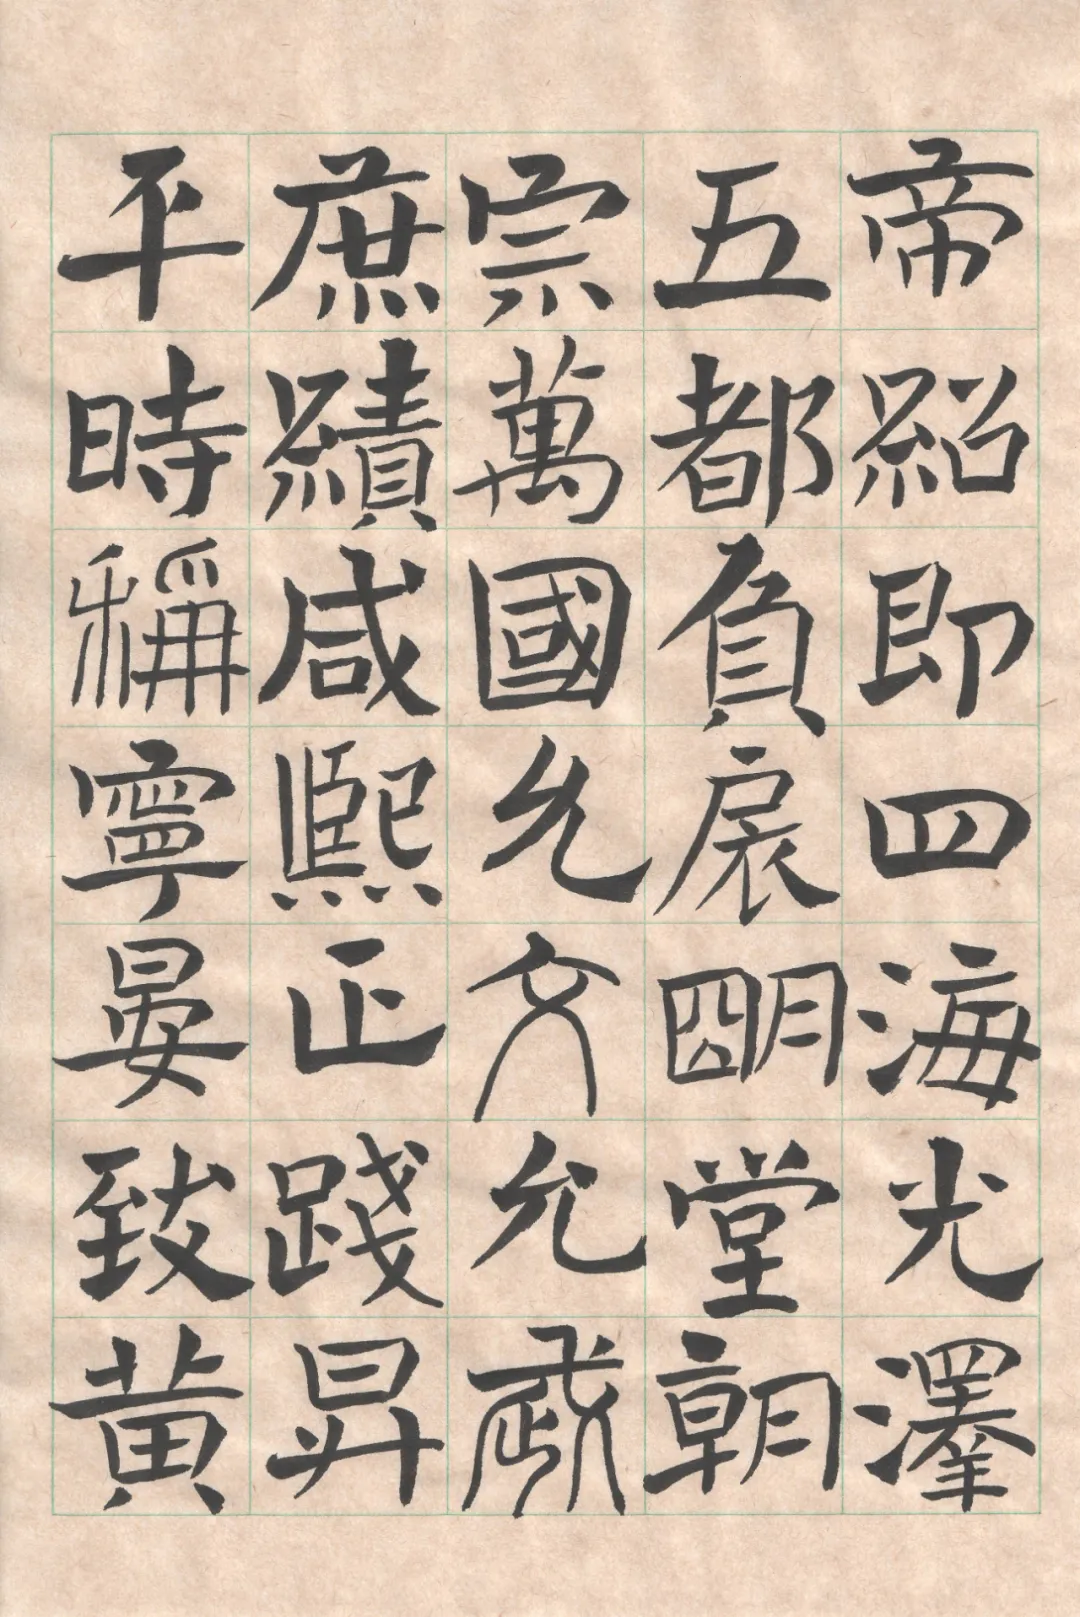 帝紹即四海光澤
五都負扆朙堂朝
宗萬國允文允武
庶績咸熙正踐昇
平時稱寧晏致黄